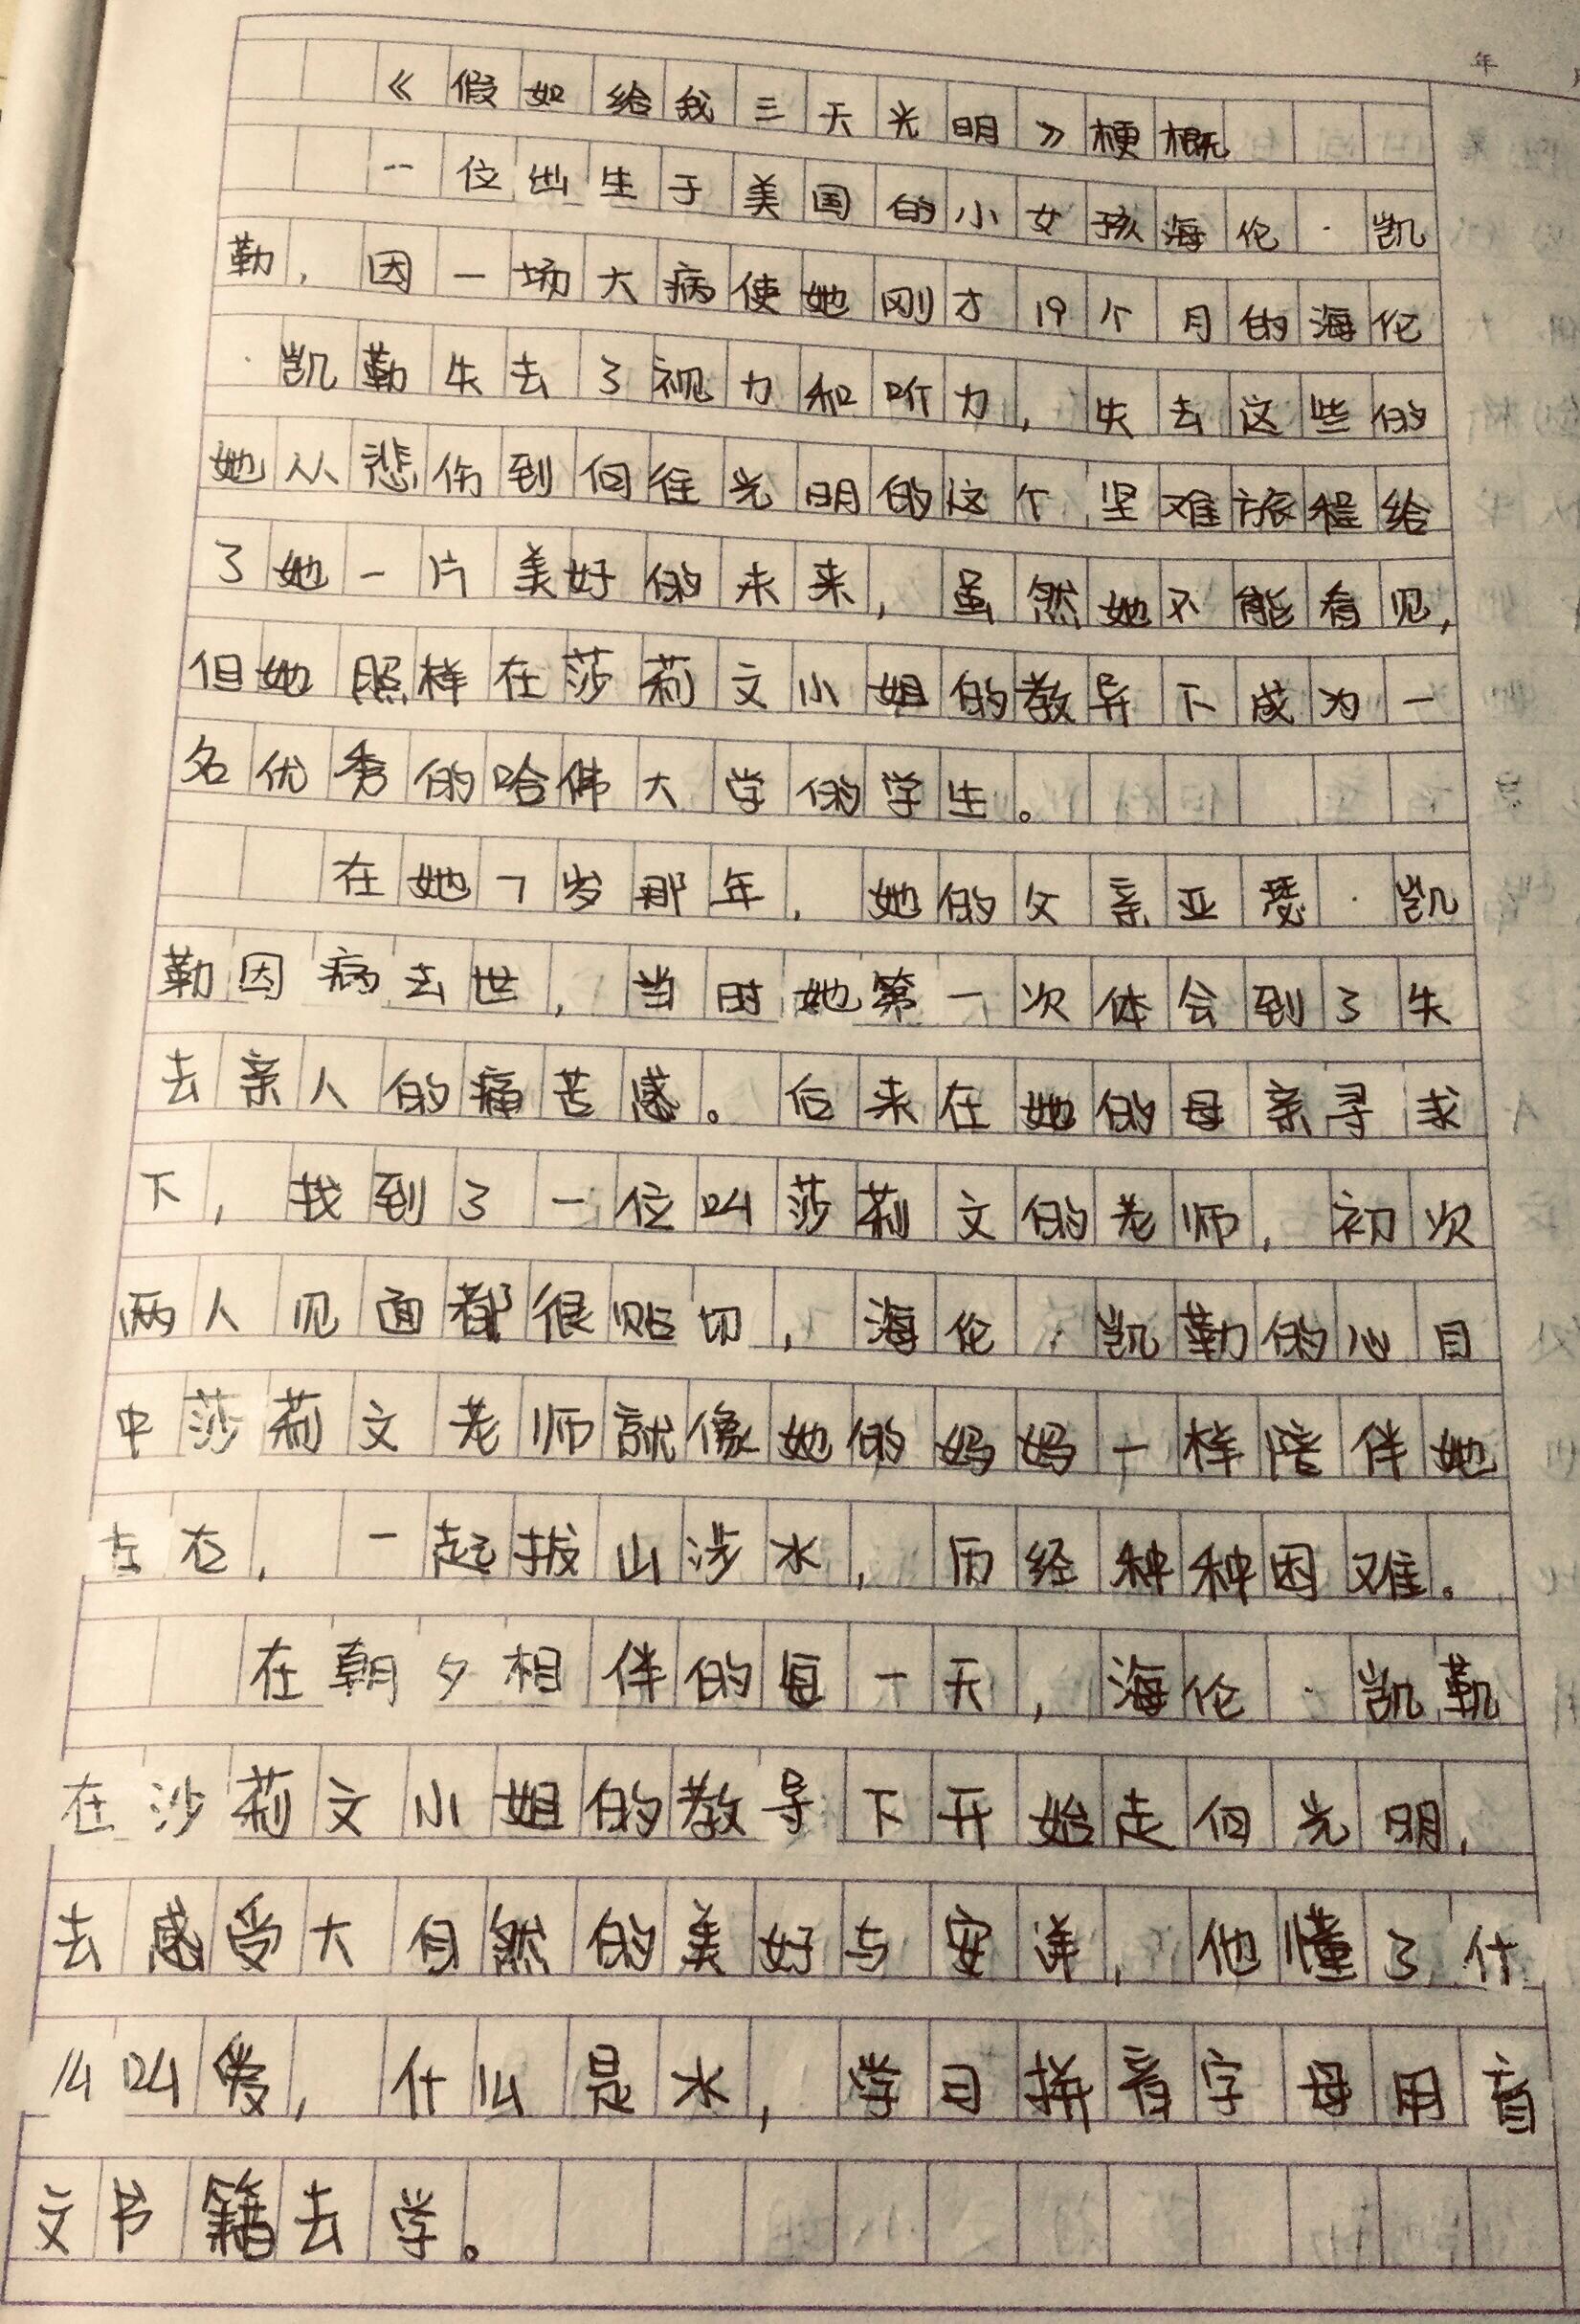 年
《假如给我三天光明》梗概
一位出生于美国的小女孩海伦·凯
勒,因一场大病使她刚才19个月的海伦
·凯勒失去了视力和听力,失去这些的
她从悲伤到向往光明的这个坚难旅程给
了她一片美好的未来,虽然她不能看见,
但她照样在莎莉文小姐的教导下成为一
名优秀的哈佛大学的学生。
在她7岁那年,她的父亲亚瑟·凯
勒因病去世,当时她第一次体会到了失
去亲人的痛苦感。后来在她的母亲寻求
下,找到了一位叫莎莉文的老师,初次
两人见面都很贴切,海伦·凯勒的心目
中莎莉文老师就像她的妈妈一样陪伴她
左右,一起拔山涉水,历经种种困难。
在朝夕相伴的每一天,海伦·凯勒
在沙莉文小姐的教导下开始走向光明,
去感受大自然的美好与安详,他懂了什
么叫爱,什么是水,学习拼音字母用盲
文书籍去学。